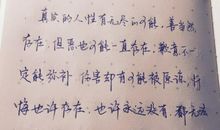 真实的人性有无尽的可能。善当然
存在，但恶也可能一直存在。歉意不一
定能弥补，伤害却有可能被原谅，忏
悔也许存在，也许永远没有，都无法